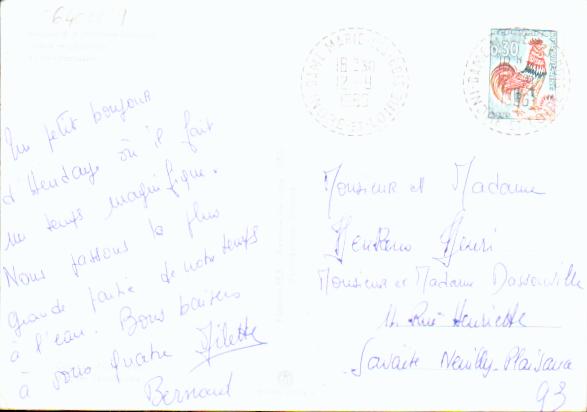 Un petit bonjour
d'Hendaye où il fait
un temps magnifique.
Nous passons la plus
grande partie de notre temps
à l'eau. Bons baisers
à vous quatre Gilette
Bernard
DAME-MARIE
18 H 30
INDRE-ET-LOIRE
0,30
Monsieur et Madame
Henri
Monsieur et Madame Dassonville
Rue Henriette
Neuilly-Plaisance
93